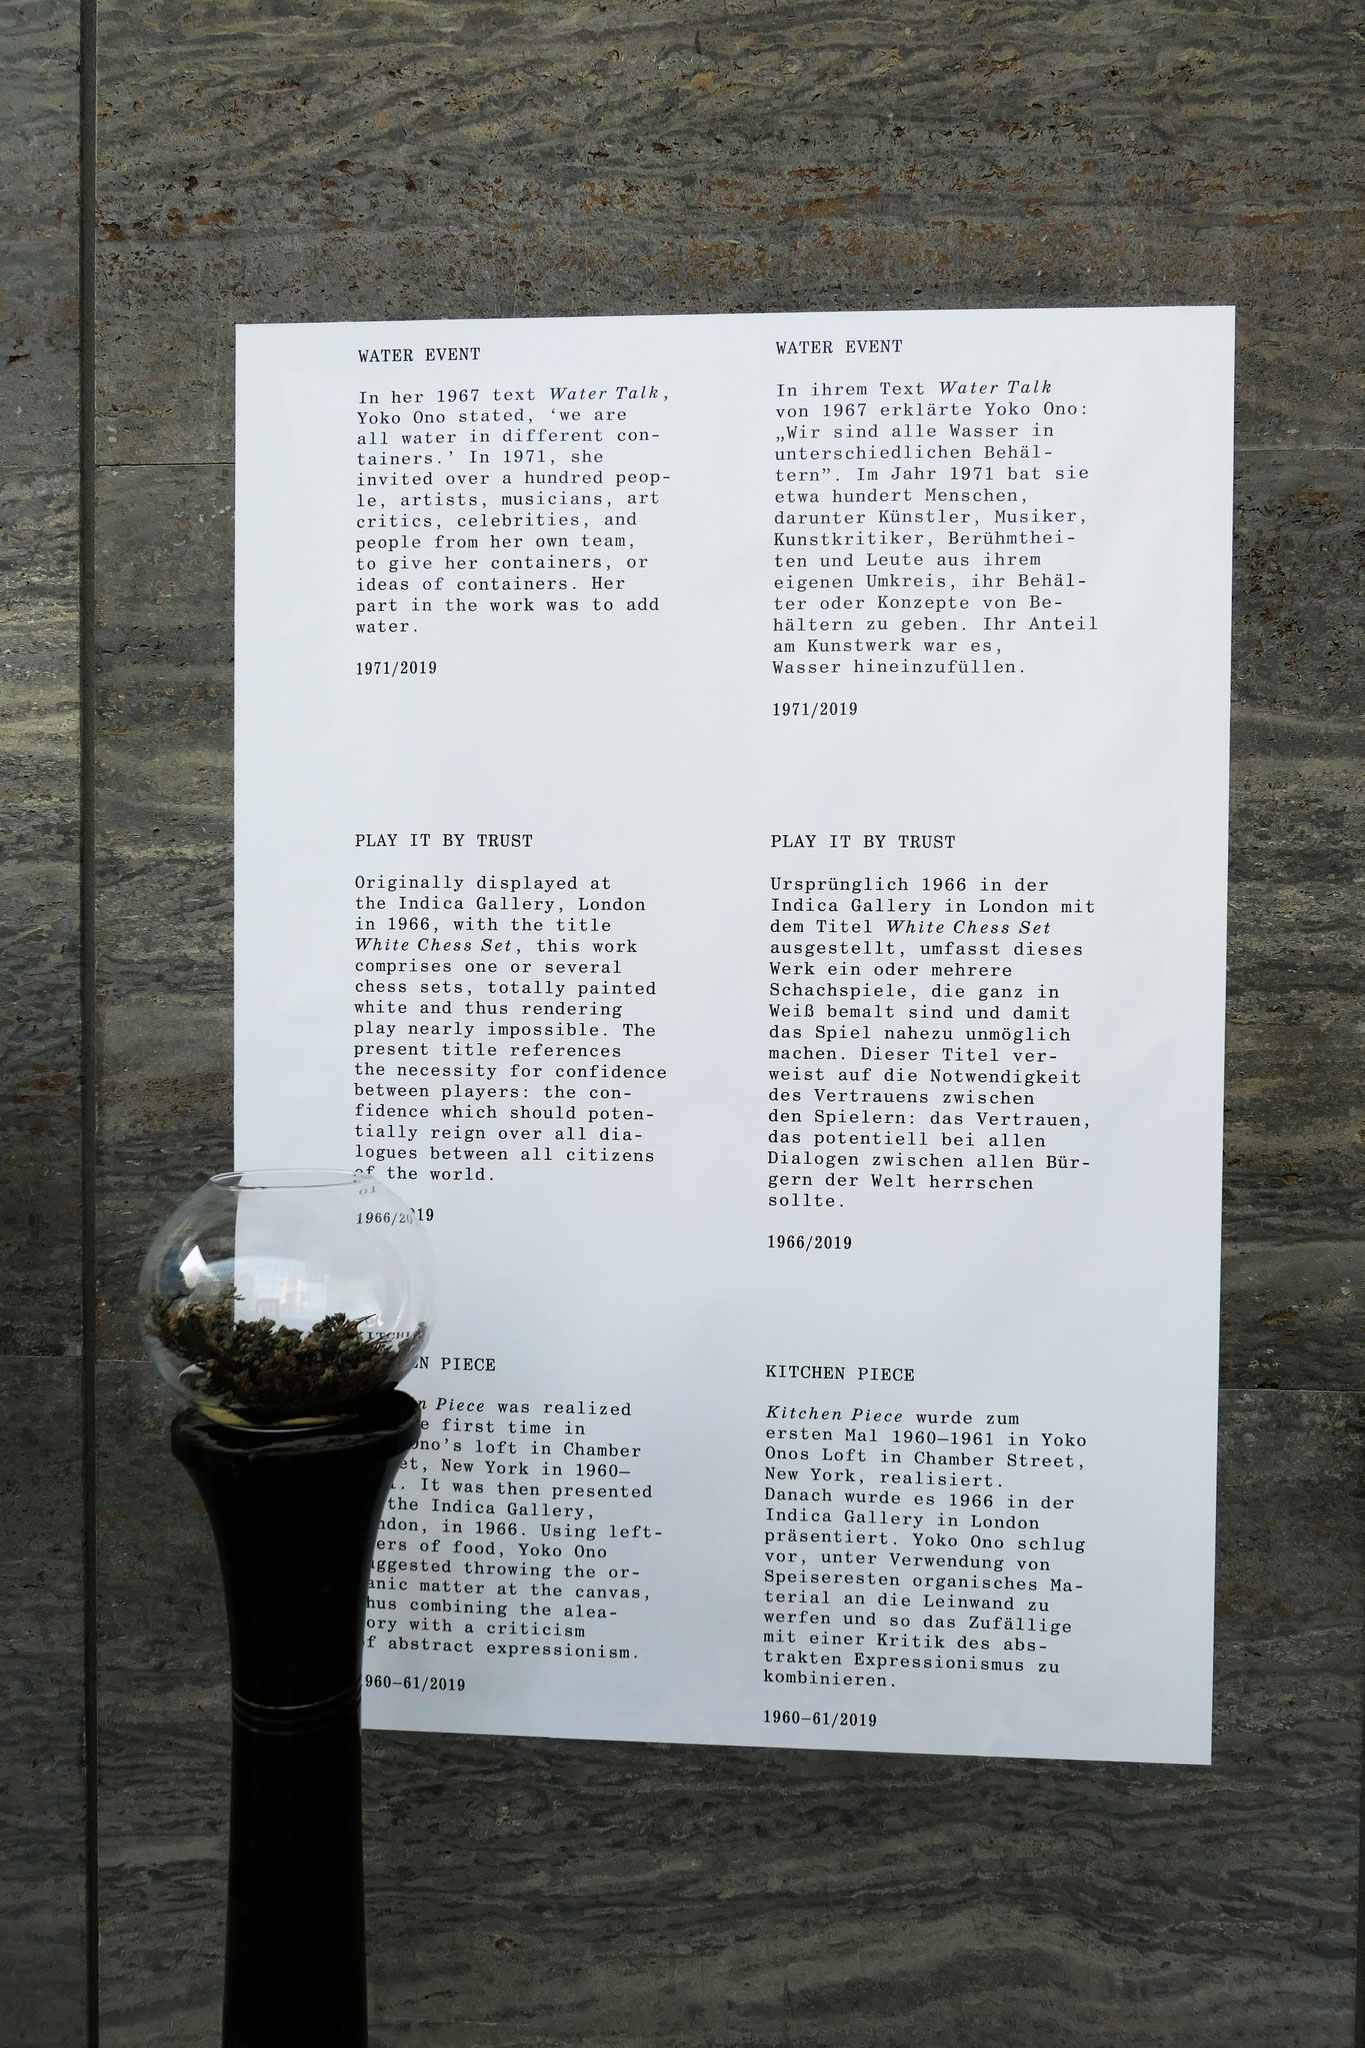 WATER EVENT
In her 1967 text Water Talk,
Yoko Ono stated, ‘we are
all water in different con-
tainers.’ In 1971, she
invited over a hundred peop-
le, artists, musicians, art
critics, celebrities, and
people from her own team,
to give her containers, or
ideas of containers. Her
part in the work was to add
water.
1971/2019
PLAY IT BY TRUST
Originally displayed at
the Indica Gallery, London
in 1966, with the title
White Chess Set, this work
comprises one or several
chess sets, totally painted
white and thus rendering
play nearly impossible. The
present title references
the necessity for confidence
between players: the con-
fidence which should poten-
tially reign over all dia-
logues between all citizens
of the world.
1966/2019
PIECE
Piece was realized
first time in
Ono’s loft in Chamber
New York in 1960–
It was then presented
the Indica Gallery,
in 1966. Using left-
of food, Yoko Ono
throwing the or-
matter at the canvas,
combining the alea-
with a criticism
abstract expressionism.
1960–61/2019
WATER EVENT
In ihrem Text Water Talk
von 1967 erklärte Yoko Ono:
„Wir sind alle Wasser in
unterschiedlichen Behäl-
tern”. Im Jahr 1971 bat sie
etwa hundert Menschen,
darunter Künstler, Musiker,
Kunstkritiker, Berühmthei-
ten und Leute aus ihrem
eigenen Umkreis, ihr Behäl-
ter oder Konzepte von Be-
hältern zu geben. Ihr Anteil
am Kunstwerk war es,
Wasser hineinzufüllen.
1971/2019
PLAY IT BY TRUST
Ursprünglich 1966 in der
Indica Gallery in London mit
dem Titel White Chess Set
ausgestellt, umfasst dieses
Werk ein oder mehrere
Schachspiele, die ganz in
Weiß bemalt sind und damit
das Spiel nahezu unmöglich
machen. Dieser Titel ver-
weist auf die Notwendigkeit
des Vertrauens zwischen
den Spielern: das Vertrauen,
das potentiell bei allen
Dialogen zwischen allen Bür-
gern der Welt herrschen
sollte.
1966/2019
KITCHEN PIECE
Kitchen Piece wurde zum
ersten Mal 1960–1961 in Yoko
Onos Loft in Chamber Street,
New York, realisiert.
Danach wurde es 1966 in der
Indica Gallery in London
präsentiert. Yoko Ono schlug
vor, unter Verwendung von
Speiseresten organisches Ma-
terial an die Leinwand zu
werfen und so das Zufällige
mit einer Kritik des abs-
trakten Expressionismus zu
kombinieren.
1960–61/2019